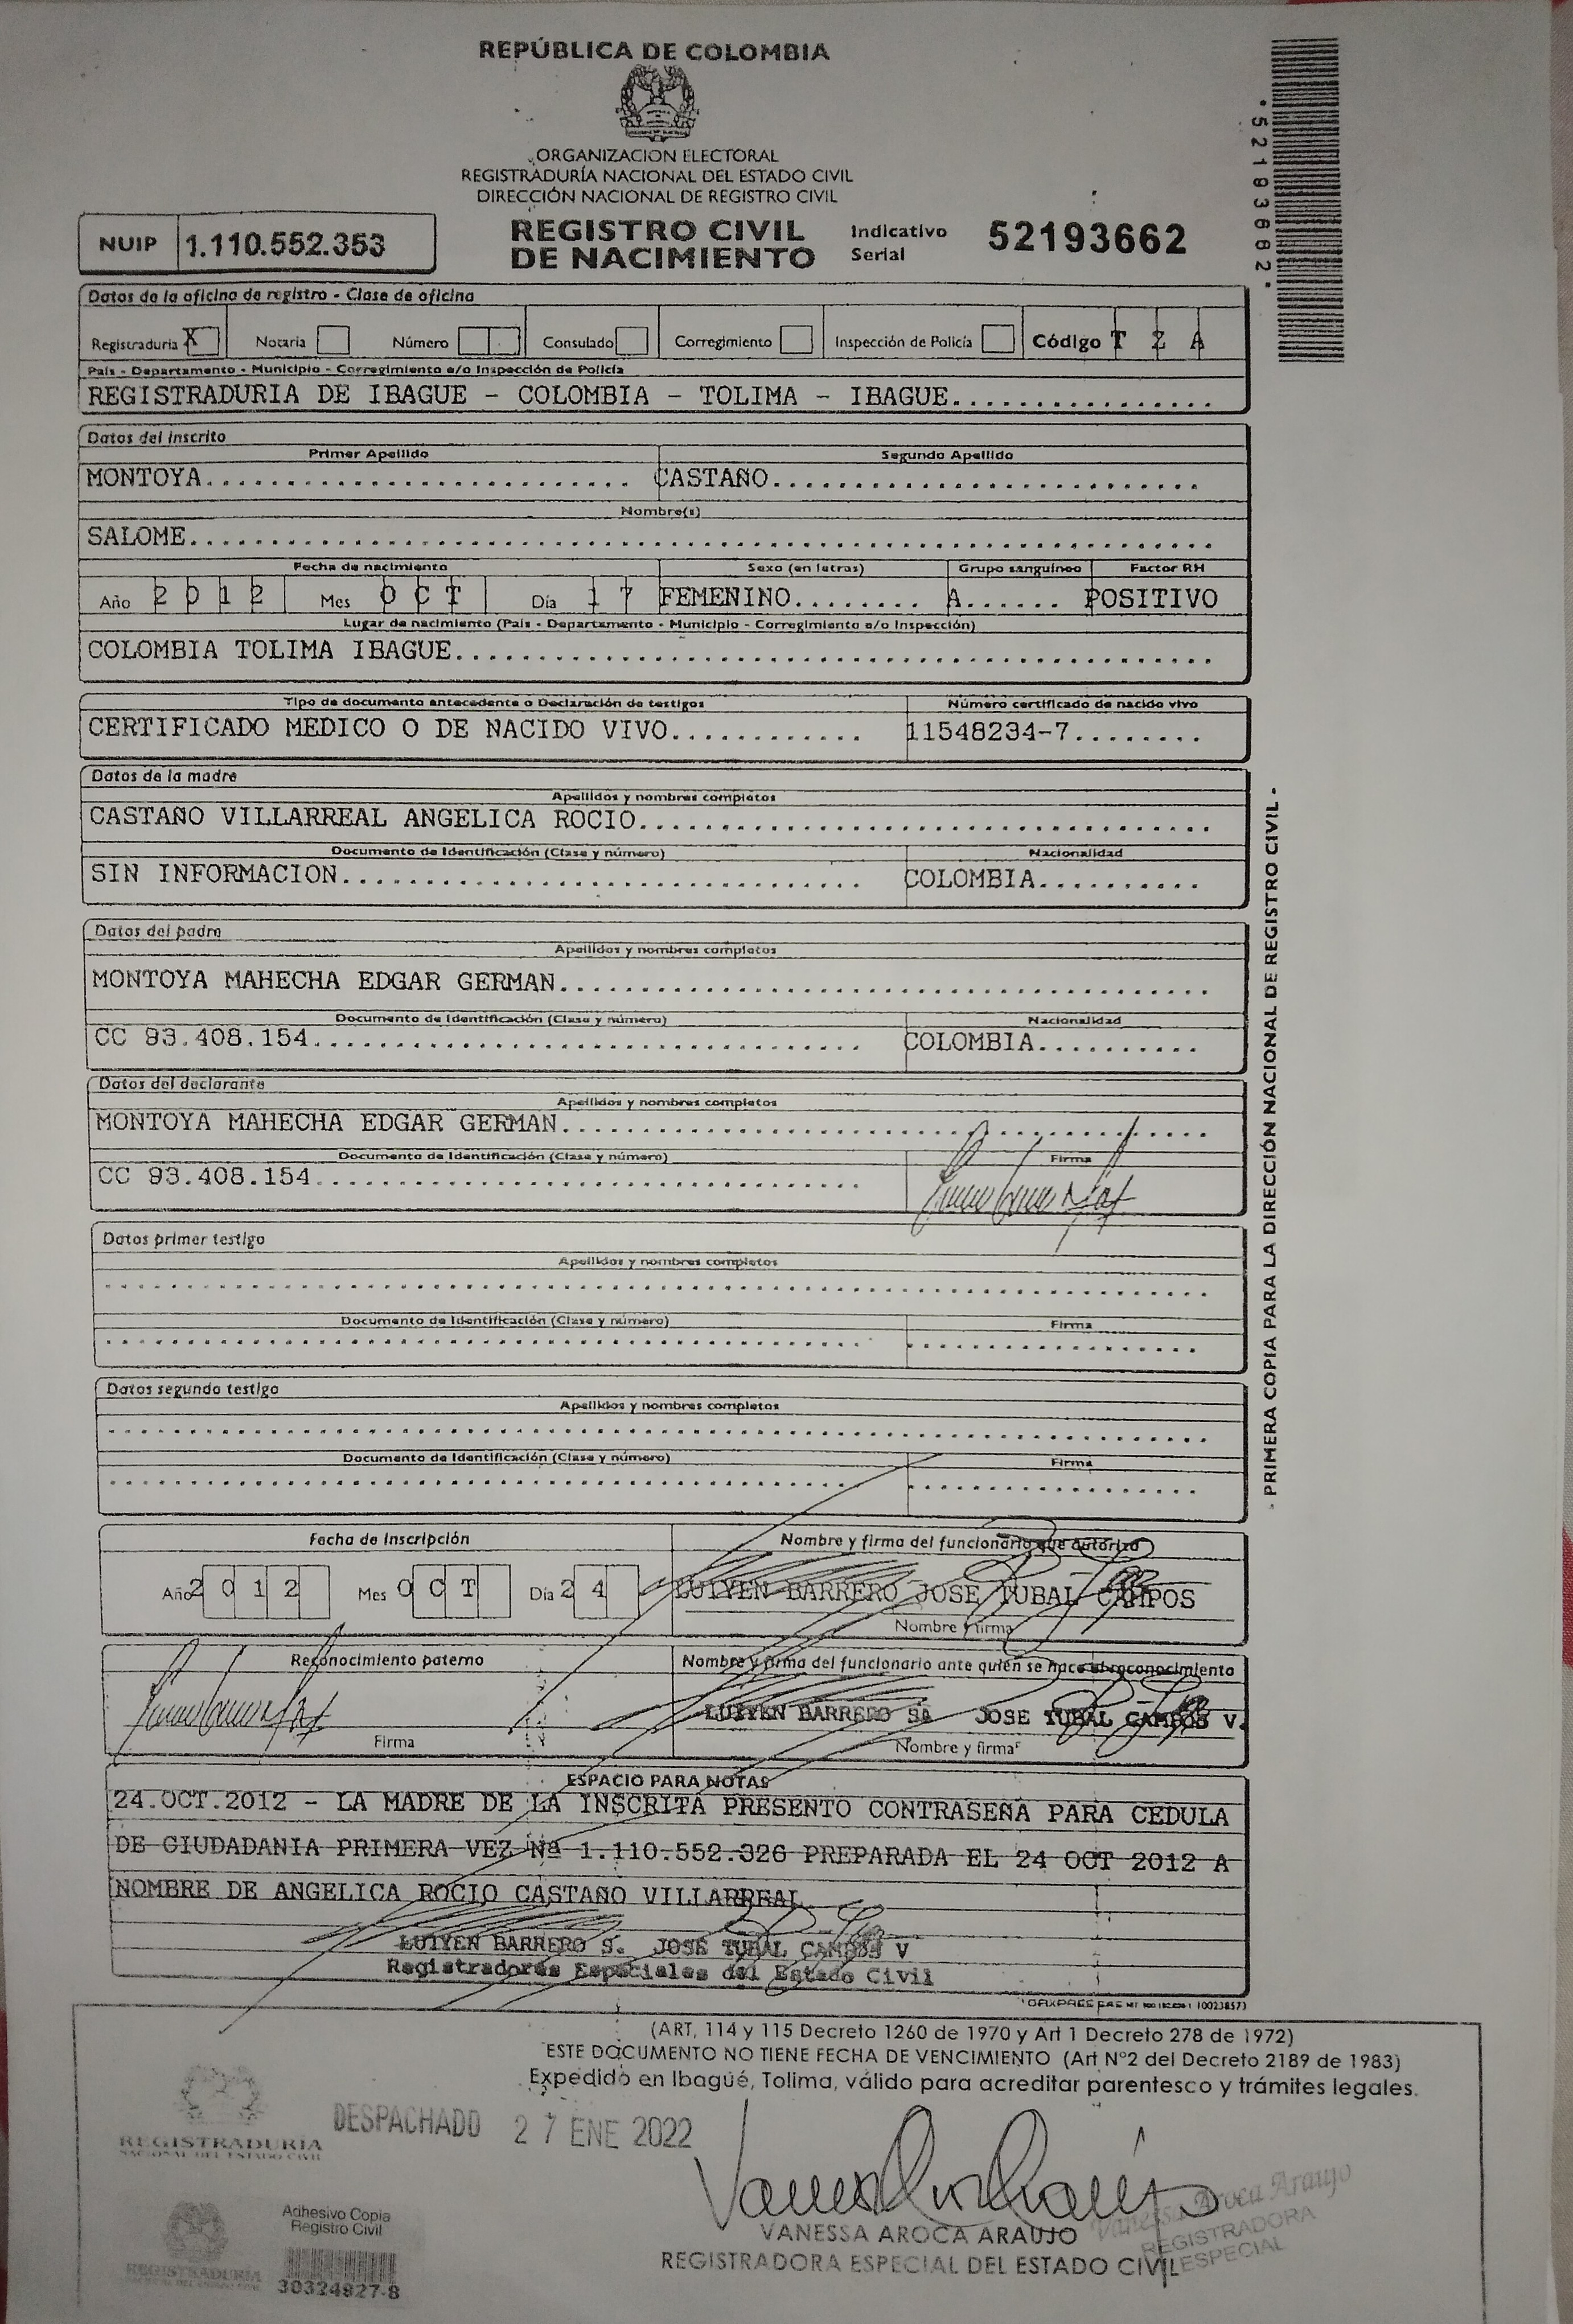 REPÚBLICA DE COLOMBIA
ORGANIZACION ELECTORAL
REGISTRADURÍA NACIONAL DEL ESTADO CIVIL
DIRECCIÓN NACIONAL DE REGISTRO CIVIL
*52193662*
NUIP 1.110.552.353
REGISTRO CIVIL DE NACIMIENTO
Indicativo Serial 52193662
Datos de la oficina de registro - Clase de oficina
Registraduría X Notaría Número Consulado Corregimiento Inspección de Policía Código T Z A
País - Departamento - Municipio - Corregimiento e/o Inspección de Policía
REGISTRADURIA DE IBAGUE - COLOMBIA - TOLIMA - IBAGUE................
Datos del inscrito
Primer Apellido Segundo Apellido
MONTOYA.......................... CASTAÑO..........................
Nombre(s)
SALOME..............................................................
Fecha de nacimiento Sexo (en letras) Grupo sanguíneo Factor RH
Año 2 0 1 2 Mes O C T Día 1 7 FEMENINO........ A...... POSITIVO
Lugar de nacimiento (País - Departamento - Municipio - Corregimiento e/o Inspección)
COLOMBIA TOLIMA IBAGUE..............................................
Tipo de documento antecedente o Declaración de testigos Número certificado de nacido vivo
CERTIFICADO MEDICO O DE NACIDO VIVO............ 11548234-7........
Datos de la madre
Apellidos y nombres completos
CASTAÑO VILLARREAL ANGELICA ROCIO..................................
Documento de Identificación (Clase y número) Nacionalidad
SIN INFORMACION................................ COLOMBIA..........
Datos del padre
Apellidos y nombres completos
MONTOYA MAHECHA EDGAR GERMAN.......................................
Documento de Identificación (Clase y número) Nacionalidad
CC 93.408.154.................................. COLOMBIA..........
Datos del declarante
Apellidos y nombres completos
MONTOYA MAHECHA EDGAR GERMAN.......................................
Documento de Identificación (Clase y número) Firma
CC 93.408.154..................................
Datos primer testigo
Apellidos y nombres completos
Documento de Identificación (Clase y número) Firma
Datos segundo testigo
Apellidos y nombres completos
Documento de Identificación (Clase y número) Firma
Fecha de inscripción Nombre y firma del funcionario que autoriza
Año 2 0 1 2 Mes O C T Día 2 4 LUIYEN BARRERO JOSE TUBAL CAMPOS
Nombre y firma
Reconocimiento paterno Nombre y firma del funcionario ante quién se hace el reconocimiento
LUIYEN BARRERO SA JOSE TUBAL CAMPOS V.
Firma Nombre y firma
ESPACIO PARA NOTAS
24.OCT.2012 - LA MADRE DE LA INSCRITA PRESENTO CONTRASEÑA PARA CEDULA
DE CIUDADANIA PRIMERA VEZ Nª 1.110.552.326 PREPARADA EL 24 OCT 2012 A
NOMBRE DE ANGELICA ROCIO CASTAÑO VILLARREAL
LUIYEN BARRERO S. JOSE TUBAL CAMPOS V
Registradores Especiales del Estado Civil
- PRIMERA COPIA PARA LA DIRECCIÓN NACIONAL DE REGISTRO CIVIL -
(ART, 114 y 115 Decreto 1260 de 1970 y Art 1 Decreto 278 de 1972)
ESTE DOCUMENTO NO TIENE FECHA DE VENCIMIENTO (Art Nº2 del Decreto 2189 de 1983)
Expedido en Ibagué, Tolima, válido para acreditar parentesco y trámites legales.
DESPACHADO 27 ENE 2022
REGISTRADURÍA
NACIONAL DEL ESTADO CIVIL
Vanessa Aroca Araujo
REGISTRADORA
ESPECIAL
VANESSA AROCA ARAUJO
REGISTRADORA ESPECIAL DEL ESTADO CIVIL
Adhesivo Copia
Registro Civil
REGISTRADURÍA
30324827-8